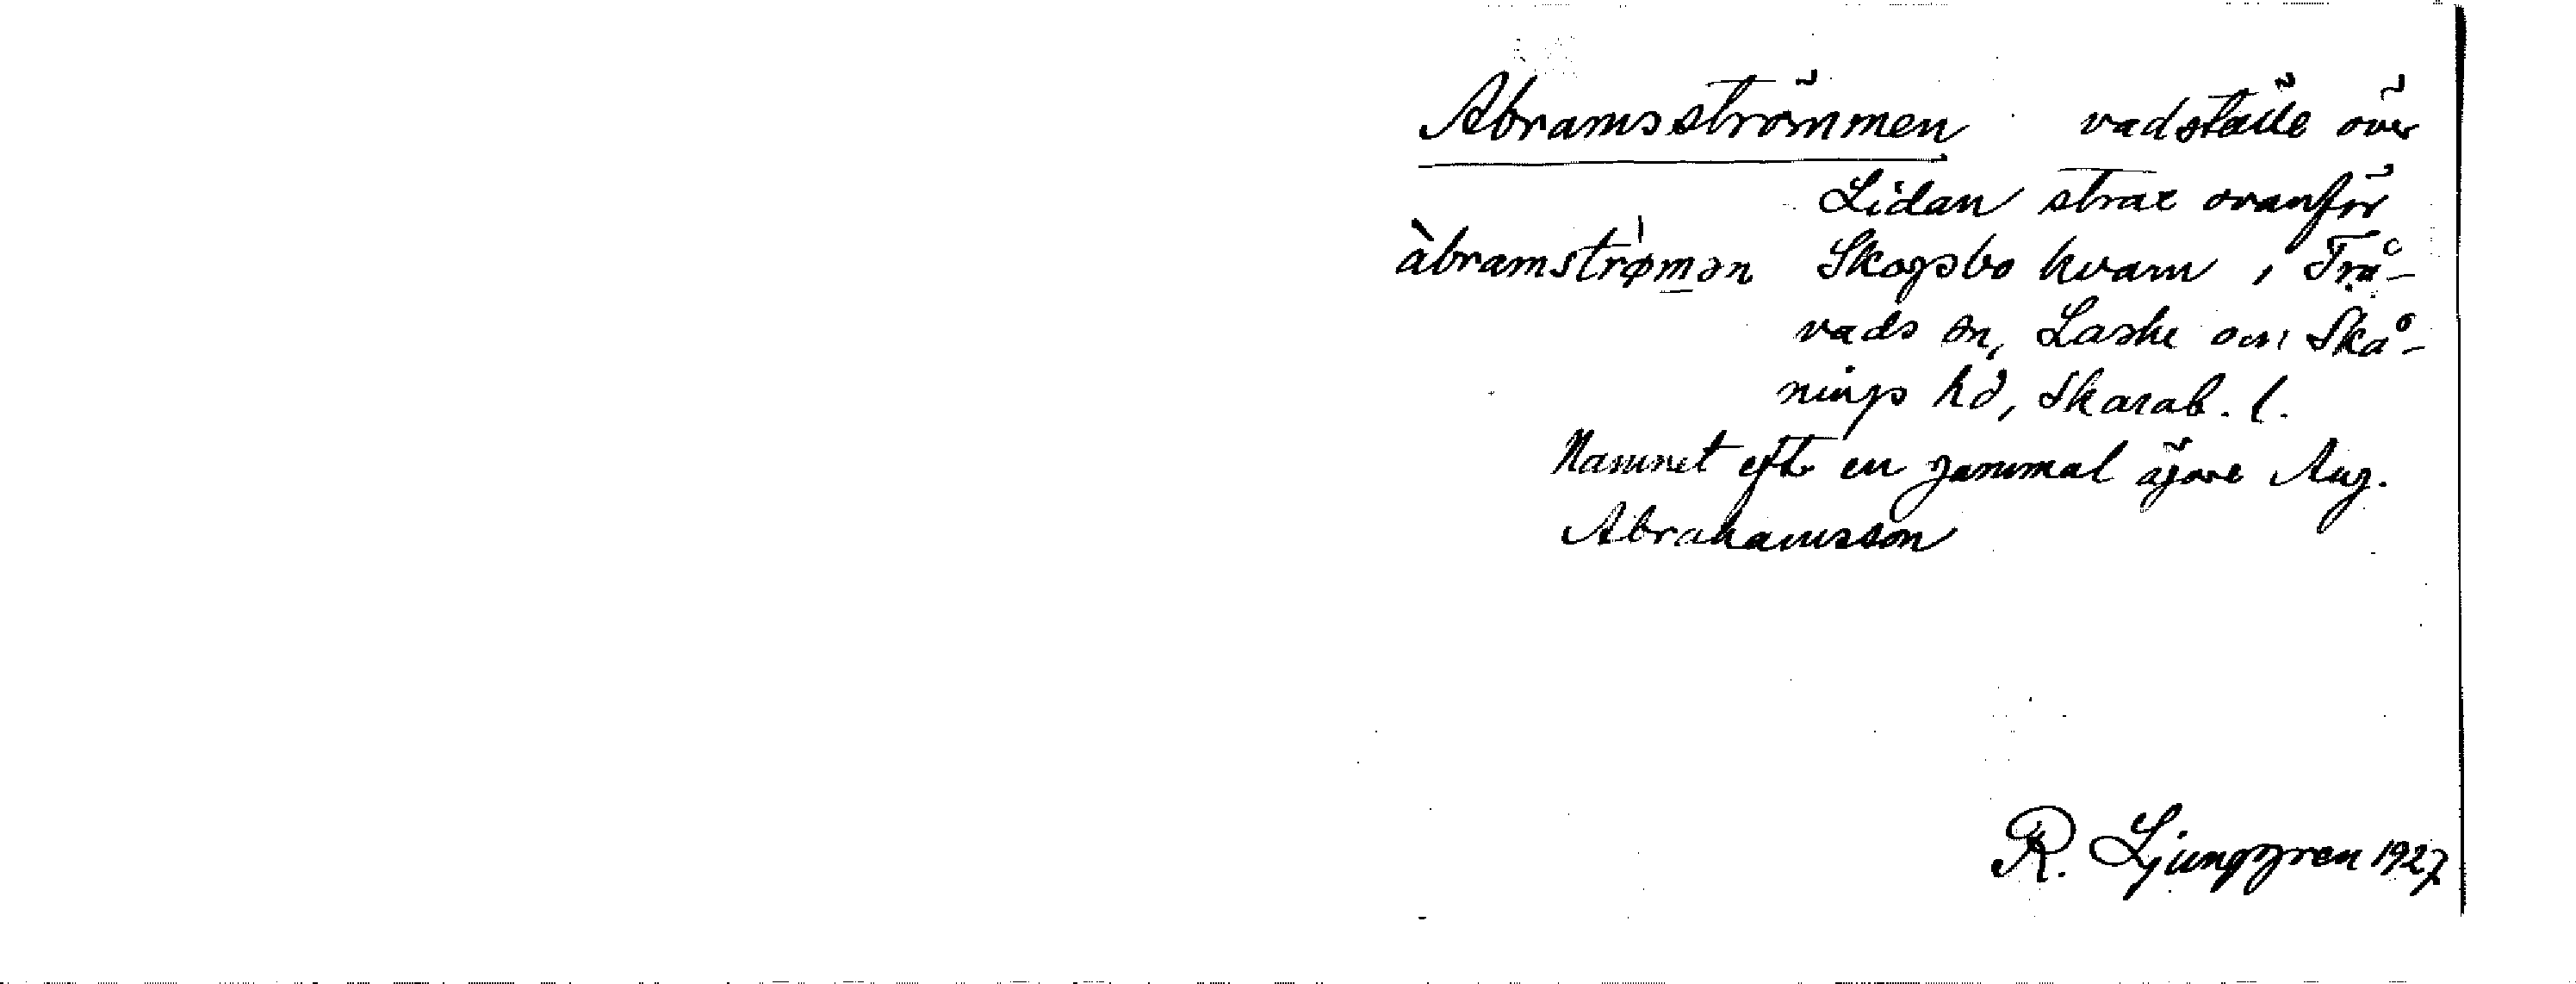 Abramsströmmen vadställe över
Lidan strax ovanför
àbramstrømən Skogsbo kvarn i Trå-
vads sn, Laske och Skå-
nings hd, Skarab. l.
Namnet efter en gammal ägare Aug.
Abrahamsson
R. Ljunggren 1927